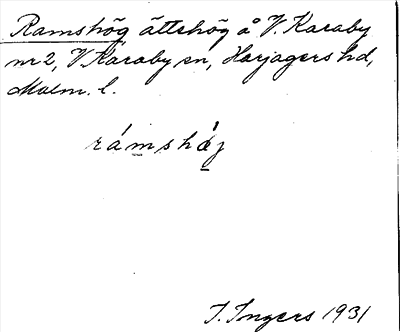 Ramshög ättehög å V. Karaby
nr 2, V Karaby sn, Harjagers hd,
Malm. l.
rámshǿj
I. Ingers 1931